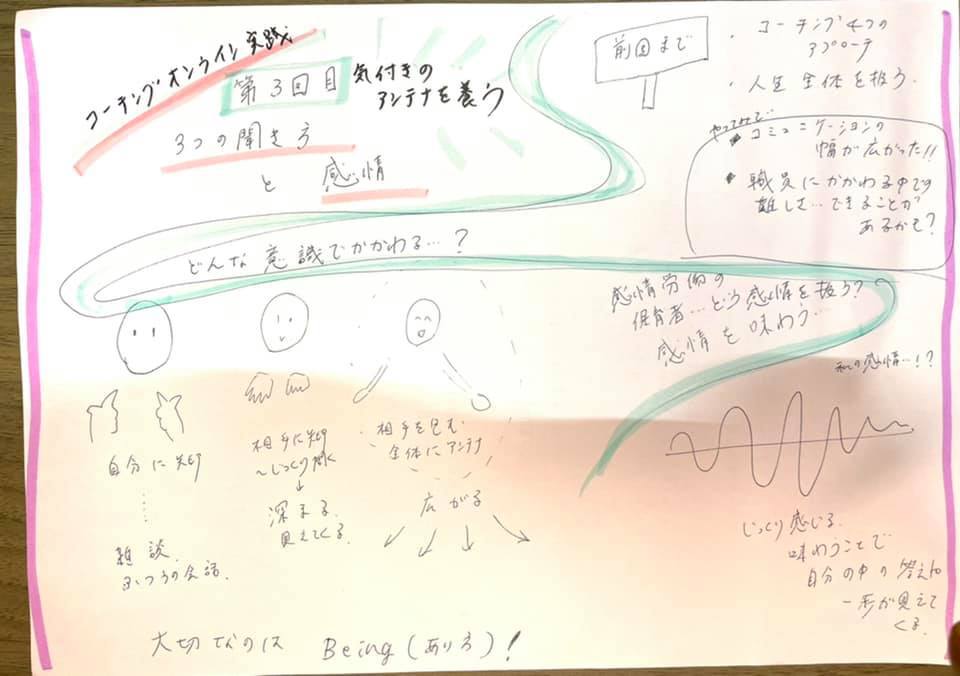 コーチングオンライン実践
第3回目
気付きの
アンテナを養う
3つの聞き方
と 感情
前回まで
・コーチング4つの
アプローチ
・人生全体を扱う.
やってみて…
■ コミュニケーションの
幅が広がった!!
・職員にかかわる中での
難しさ…できることが
あるかも?
どんな意識でかかわる…?
感情労働の
保育者…どう感情を扱う?
感情を味わう…
私の感情…!?
自分に矢印
雑談
ふつうの会話.
相手に矢印
〜じっくり聞く
↓
深まる
見えてくる.
相手を包む
全体にアンテナ
広がる
じっくり感じる.
味わうことで
自分の中の答えや
形が見えて
くる.
大切なのは Being(あり方)!